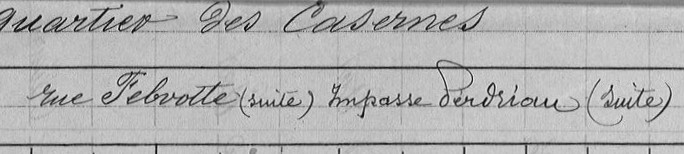 quartier des Casernes
rue Febvotte (suite) Impasse Derdriau (suite)